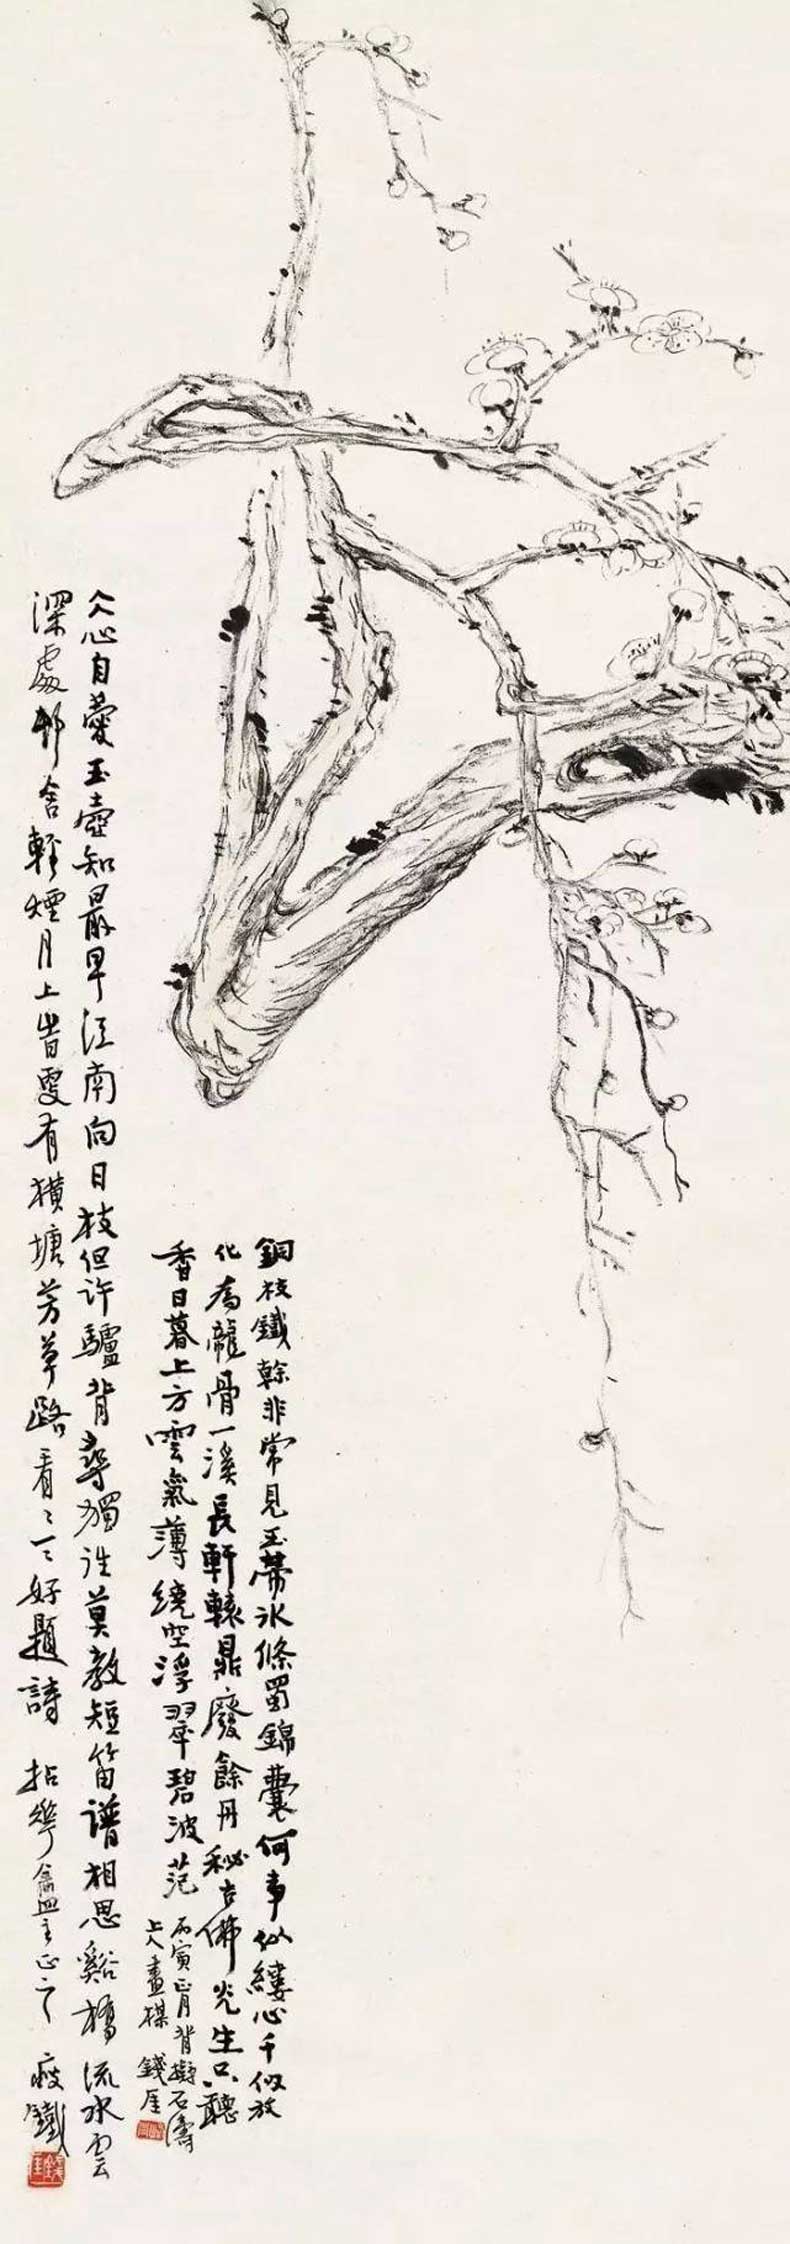 銅枝鐵榦非常見玉蒂冰條蜀錦囊何事似縷心千似放
化為龍骨一溪長軒轅鼎廢餘丹秘古佛光生只聽
香日暮上方雲氣薄繞空浮翠碧波茫
丙寅正月背擬石濤
上人畫楳 錢厓
仌心自愛玉壺知最早江南向日枝但許驢背尋獨往莫教短笛譜相思谿橋流水雲
深處邨舍輕煙月上時更有橫塘芳草路看〻一〻好題詩 拈華龕主正之 瘦鐵